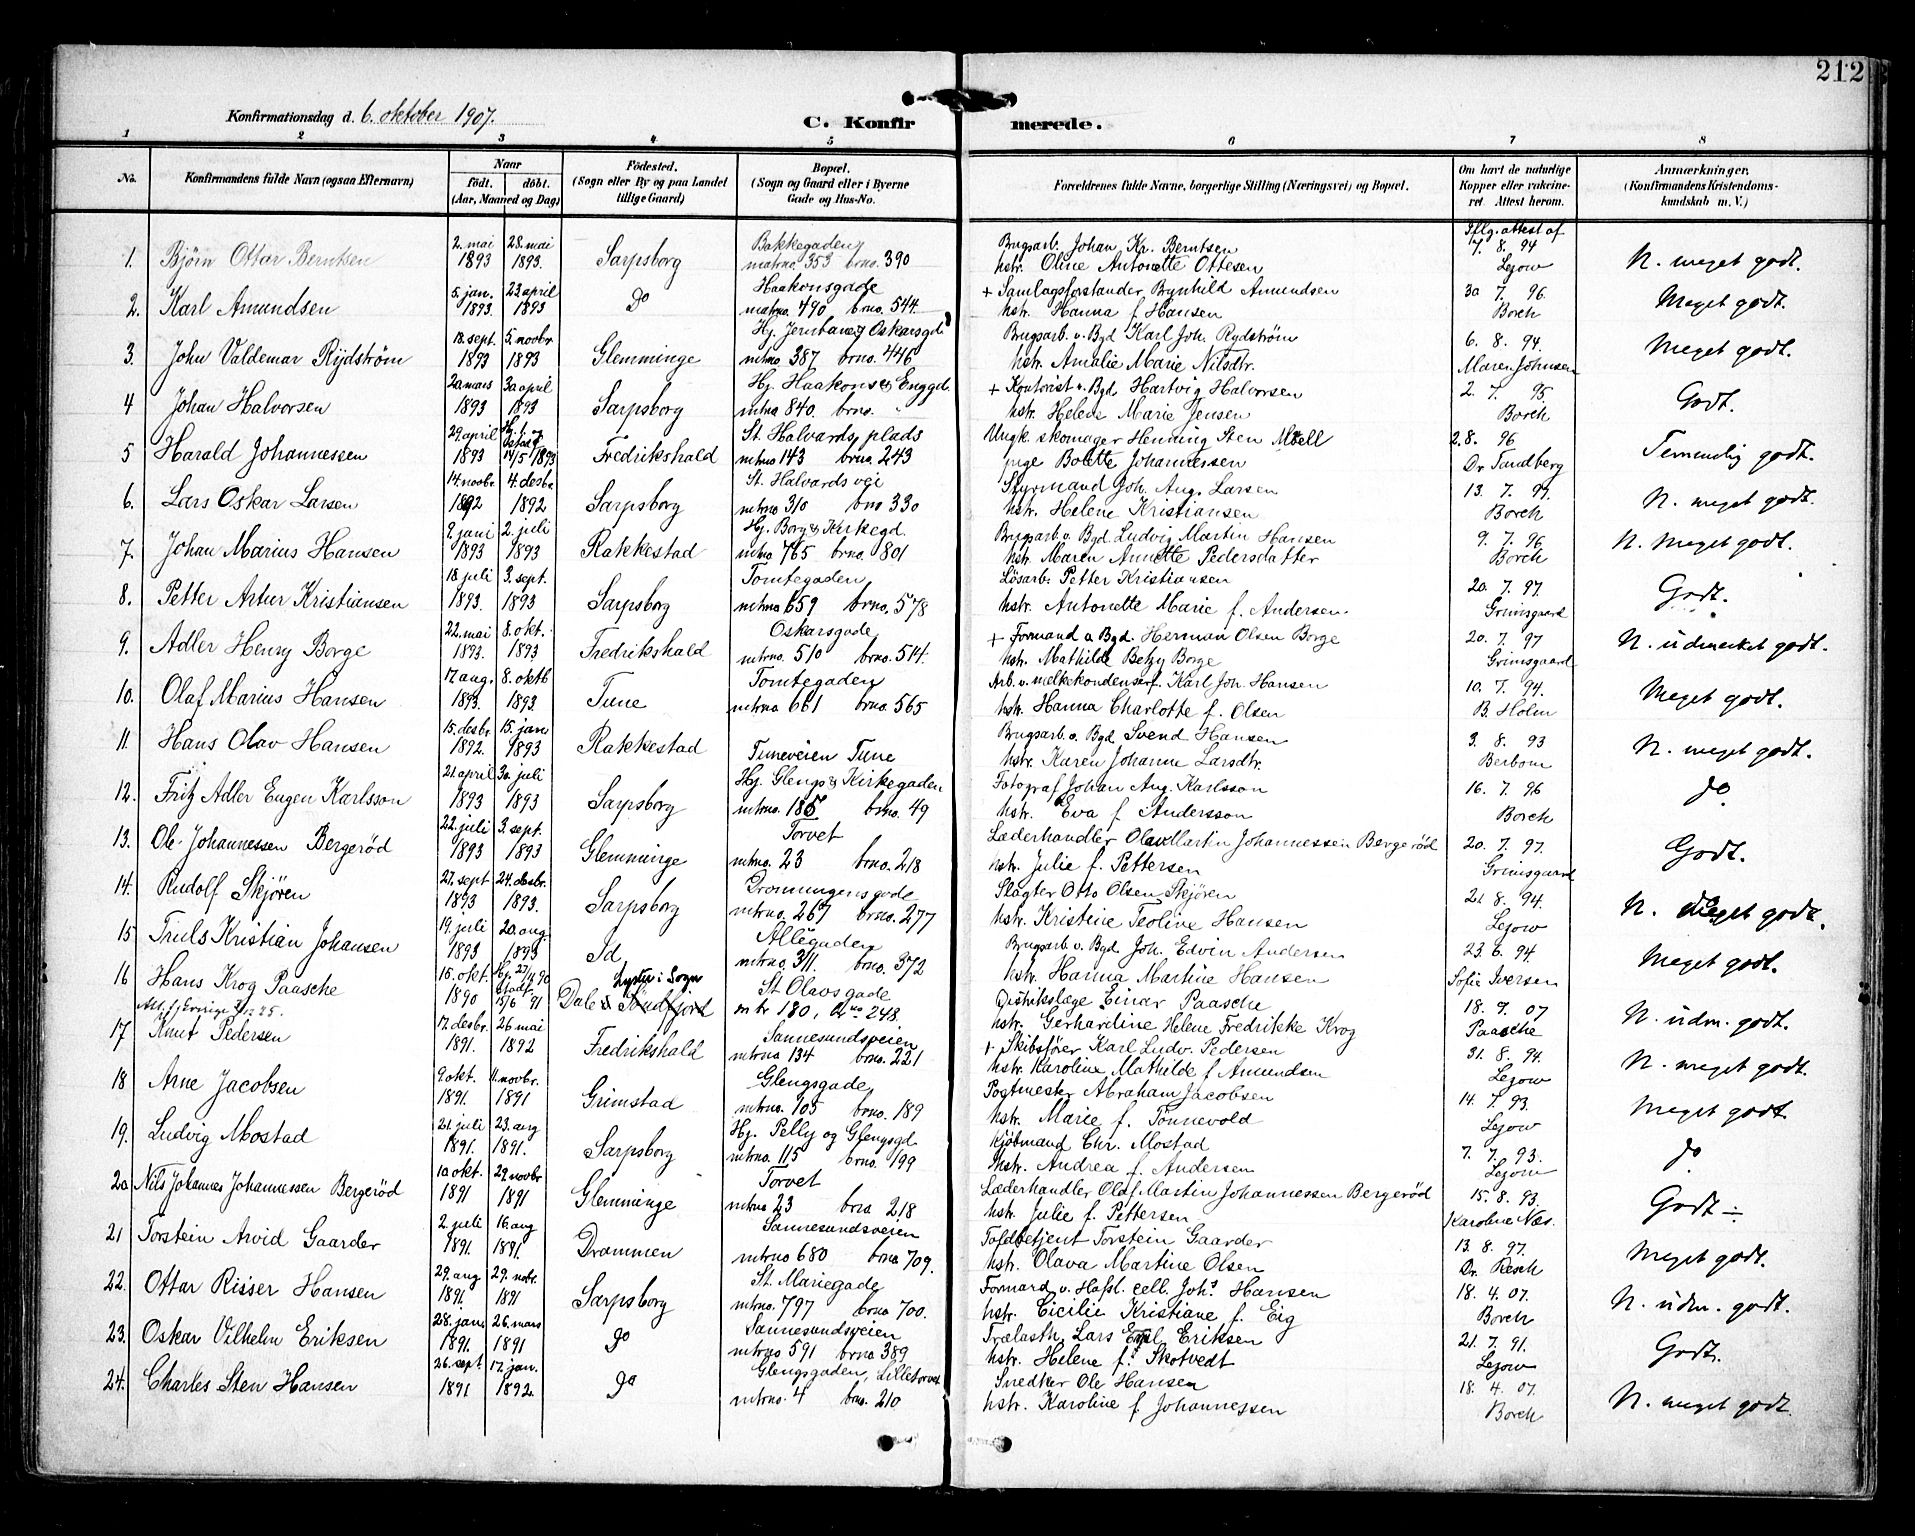 212
Konfirmationsdag d. 6. oktober 1907.
C. Konfirmerede.
1 2 3 4 5 6 7 8
No.
Konfirmandens fulde Navn (ogsaa Efternavn)
Naar
født. døbt.
(Aar, Maaned og Dag)
Fødested.
(Sogn eller By og paa Landet
tillige Gaard)
Bopæl.
(Sogn og Gaard eller i Byerne
Gade og Hus-No.
Forældrenes fulde Navne, borgerlige Stilling (Næringsvei) og Bopæl.
Om havt de naturlige
Kopper eller vakcine-
ret Attest herom.
Anmærkninger.
(Konfirmandens Kristendoms-
kundskab m. V.)
1. Bjørn Ottar Berntsen 2. mai 1893 28. mai 1893. Sarpsborg Bakkegaden matrno. 353 brno. 390
Brugsarb. Johan Kr. Berntsen
hstr. Oline Antonette Ottesen
Iflg. attest af 7. 8. 94 Lejow N. meget godt.
2. Karl Amundsen 5. jan. 1893. 23 april 1893 do Haakonsgade matrno. 490 brno. 544.
+ Samlagsforstander Brynhild Amundsen
hstr. Hanna f. Hansen
30 7. 96. Borch Meget godt.
3. John Valdemar Rydström 18. sept. 1893 5. novbr. 1893 Glemminge Hj. Jernbane og Oskarsgd mtrno 387 brno. 446
Brugsarb. v. Bgd Karl Joh. Rydström
hstr. Amalie Marie Nilsdtr.
6. 8. 94. Maren Johnsen Meget godt.
4 Johan Halvorsen 20 mars 1893 30 april 1893 Sarpsborg Hj. Haakons og Enggd. mtrno 840. brno. "
+ Kontorist v. Bgd. Hartvig Halvorsen
hstr. Helene Marie Jensen
2. 7. 95. Borch Godt.
5 Harald Johannessen 29. april 1893 Hj. 1. og stadf. 14/5 1893 Fredrikshald St. Halvards plads mtrno 143 brno. 243
Ungk. skomager Henning Sten
pige Bolette Johannessen
2. 8. 96 Dr Tandberg Temmelig godt.
6. Lars Oskar Larsen 14. novbr 1892 4. desbr. 1892 Sarpsborg St. Halvards vei mtrno 310 brno 330
Styrmand Joh. Aug. Larsen
hstr. Helene Kristiansen
13. 7. 97. Borch N. meget godt.
7. Johan Marius Hansen 9. juni 1893 2. juli 1893 Rakkestad Hj. Borg & Kirkegd. mtrno 765 brno. 801
Brugsarb. v. Bgd. Ludvig Martin Hansen
hstr. Maren Annette Pedersdatter
9. 7. 96 Borch N. Meget godt.
8. Petter Artur Kristiansen 18. juli 1893. 3. sept. 1893 Sarpsborg Tomtegaden mtrno 659 brno. 578
Løsarb. Petter Kristiansen
hstr. Antonette Marie f. Andersen.
20. 7. 97. Grimsgaard Godt.
9. Adler Henry Borge 22. mai 1893. 8. okt. 1893 Fredrikshald Oskarsgade mtrno. 510 brno. 514.
+ Formand a Bgd. Herman Olsen Borge
hstr. Mathilde Betzy Borge
20. 7. 97 Grimsgaard N. udmerket godt.
10. Olaf Marius Hansen 17. aug. 1893. 8. oktb 1893. Tune Tomtegaden mtrno 661 brno. 565
Arb. v. melkekondenserf. Karl Joh. Hansen
hstr. Hanna Charlotte f. Olsen
10. 7. 94. B. Holm Meget godt.
11. Hans Olav Hansen 15. desbr 1892. 15. jan 1893 Rakkestad Tuneveien Tune
Brugsarb. v. Bgd Svend Hansen
hstr. Karen Johanne Larsdtr.
3. 8. 93 Berbom N. meget godt.
12. Fritz Adler Eugen Karlsson 21. april 1893 30. juli 1893 Sarpsborg Hj. Glengs & Kirkegaden mtrno. 185 brno. 49
Fotograf Johan Aug. Karlsson
hstr. Eva f Andersson
16. 7. 96 Borch do
13. Ole Johannessen Bergerød 22. juli 1893 3. sept. 1893 Glemminge Torvet mtrno. 23 brno. 218
Læderhandler Olav Martin Johannessen Bergerød
hstr. Julie f. Pettersen
20. 7. 97. Grimsgaard Godt.
14. Rudolf Skjøren 27. sept 1893 24. desbr. 1893. Sarpsborg Dronningensgade mtrno. 267 brno. 277
Slagter Otto Olsen Skjøren
hstr. Kristine Teoline Hansen
21 8. 94. Lejow N. meget godt.
15 Truls Kristian Johansen 19. juli 1893 20. aug 1893 Id Allégaden mtrno. 311. brno. 372
Brugsarb. v. Bgd Joh. Edvin Andersen
hstr. Hanna Martine Hansen
23. 6. 94. Sofie Iversen Meget godt.
16 Hans Krog Paasche 15. okt. 1890 Hj. 27/11 90 stadf 15/6 91 Dale i Søndfjord Lyster i Sogn St Olavs gade m br 180, brno 248.
Distrikslæge Einar Paasche
hstr. Gerhardine Helene Fredrikke Krog
18. 9. 07 Paasche N. udm. godt.
17 Knut Pedersen 17. desbr. 1891. 26 mai 1892 Fredrikshald Sannesundsveien mtrno 134 brno. 221
+ Skibsfører Karl Ludv. Pedersen
hstr. Karoline Mathilde f Amundsen
31. 8. 94. Lejow N. meget godt.
18 Arne Jacobsen 9. okt. 1891. 11. novbr. 1891 Grimstad Glengsgade mtrno. 105 brno. 189
Postmester Abraham Jacobsen
hstr. Marie f. Tønnevold
14. 7. 93. Lejow Meget godt.
19. Ludvig Mostad 21. juli 1891. 23. aug 1891. Sarpsborg Hj. Pelly og Glengsgd. mtrno. 115 brno. 199
Kjøbmand Chr. Mostad
hstr. Andrea f. Andersen
7. 7. 93. Lejow do
20 Nils Johannes Johannessen Bergerød 10 okt. 1891 29 novbr 1891 Glemminge Torvet mtrno 23 brno 218
Læderhandler Olaf Martin Johannessen Bergerød
hstr. Julie f. Pettersen
15. 8. 93. Karoline Næs. Godt ÷
21 Torstein Arvid Gaarder 2. juli 1891. 16. aug 1891. Drammen Sannesundsveien mtrno 680 brno 709.
Toldbetjent Torstein Gaarder
hstr. Olava Martine Olsen
13. 8. 97. Dr. Resch Meget godt.
22. Ottar Risser Hansen 29. aug 1891. 29. nobr. 1891 Sarpsborg St. Mariegade mtrno. 797 brno 700.
Formand v. Hafsl. cell. Johs. Hansen
hstr. Cicilie Kristiane f. Eig
18. 4. 07. Borch N. udm. godt.
23. Oskar Vilhelm Eriksen 28. jan. 1891. 26. mars 1891 do Sannesundsveien mtrno 591 brno 389
Trælasth. Lars Emil Eriksen
hstr. Helene f. Skotvedt
21. 7. 91. Lejow Godt.
24. Charles Sten Hansen 26. sept 1891 17. jan. 1892. do Glengsgaden, Lilletorvet mtrno. 4 brno. 210
Snedker Ole Hansen
hstr. Karoline f. Johannessen
18. 4. 07. Borch N. meget godt.